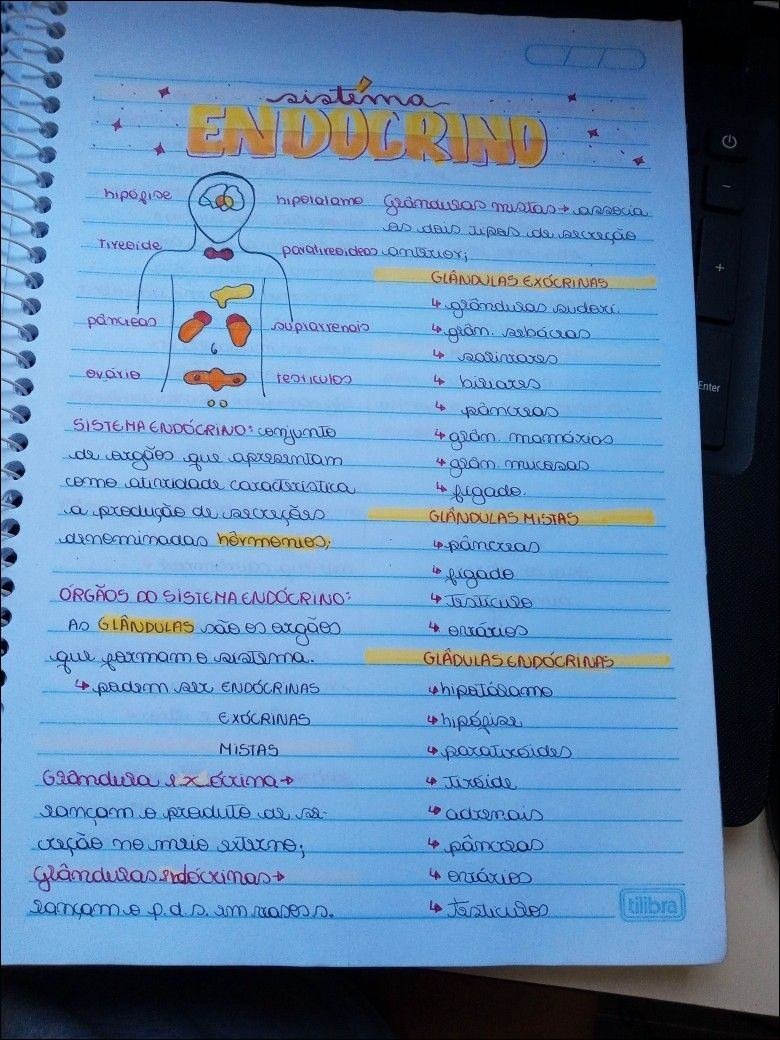 sistema
ENDÓCRINO
hipófise
hipotálamo
tireoide
paratireoideos
pâncreas
suprarrenais
ovário
testiculos
SISTEMA ENDÓCRINO: conjunto
de orgãos que apresentam
como atividade característica
a produção de secreções
denominadas hôrmonios;
ÓRGÃOS DO SISTEMA ENDÓCRINO:
AS GLÂNDULAS são os orgãos
que formam o sistema.
↳ podem ser ENDÓCRINAS
EXÓCRINAS
MISTAS
Glândula exócrina →
lançam o produto de se-
creção no meio externo;
Glândulas endócrinas →
lançam o p.d.s. em vasos s.
Glândulas mistas → associa
os dois tipos de secreção
anterior;
GLÂNDULAS EXÓCRINAS
↳ glândulas sudori.
↳ glân. sebáceas
↳ salivares
↳ biliares
↳ pâncreas
↳ glân. mamários
↳ glân. mucosas
↳ fígado.
GLÂNDULAS MISTAS
↳ pâncreas
↳ fígado
↳ testículo
↳ ovários
GLÂDULAS ENDÓCRINAS
↳ hipotálamo
↳ hipófise
↳ paratiróides
↳ tiróide
↳ adrenais
↳ pâncreas
↳ ovários
↳ testículos
tilibra
Enter